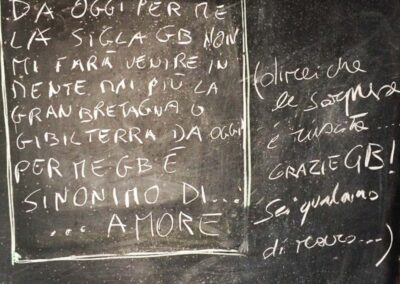 DA OGGI PER ME
LA SIGLA GB NON
MI FARÀ VENIRE IN
MENTE MAI PIÙ LA
GRAN BRETAGNA O
GIBILTERRA DA OGGI
PER ME GB È
SINONIMO DI...
... AMORE
(direi che
la sorpresa
è riuscita...
GRAZIE GB!
Sei qualcuno
di ...)